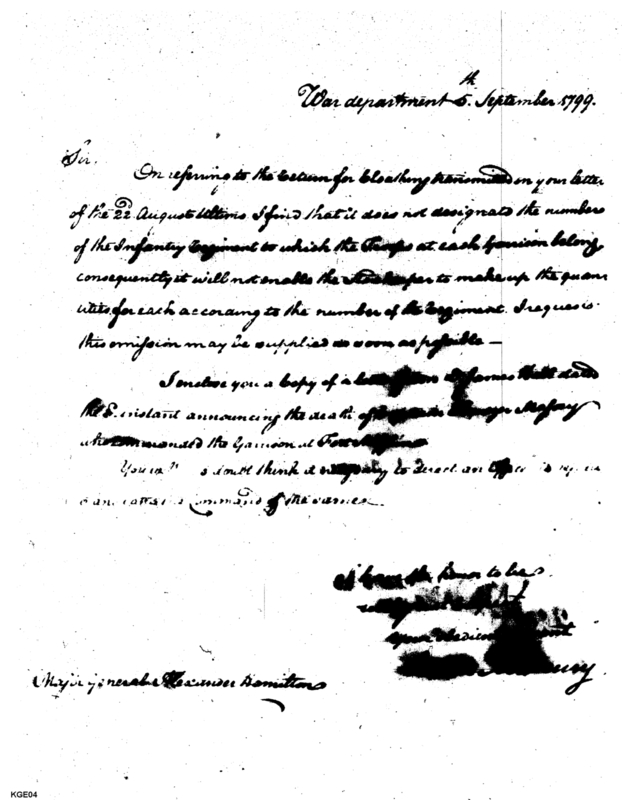 War department 5th September 1799.
Sir.
On referring to the return for Cloathing transmitted in your letter
of the 22d August ultimo I find that it does not designate the number
of the Infantry Regiment to which the Troops at each Garrison belong
consequently it will not enable the Storekeeper to make up the quan
tities for each according to the number of the Regiment. I request
this omission may be supplied as soon as possible —
I enclose you a Copy of a letter from James Hall dated
the 5. instant announcing the death of
who commanded the Garrison at Fort Mifflin
You will no doubt think it necessary to direct an officer to
and take Command of the same
I have the honor to be
with great respect
your obedient servant
Major general Alexander Hamilton
KGE04